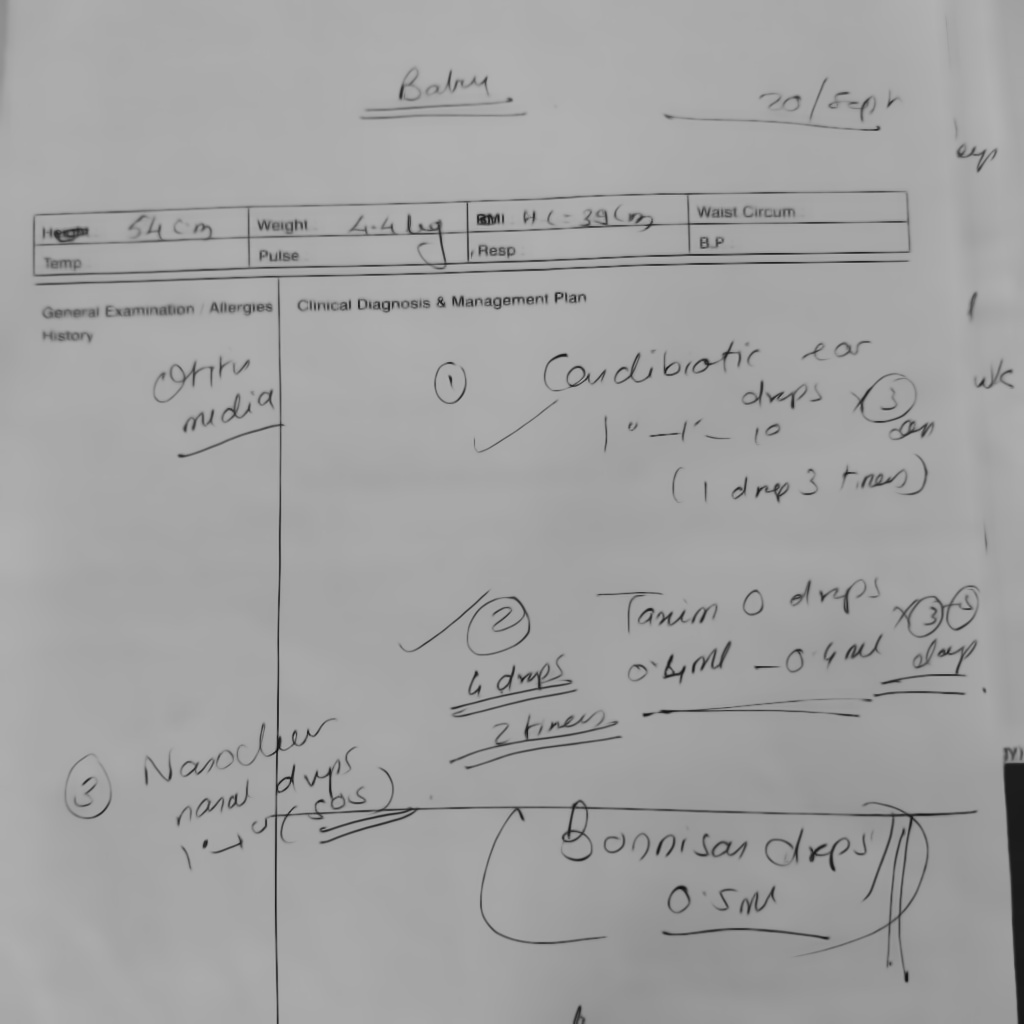 Baby
20/Sept
Height 54 cm Weight 4.4 kg BMI HC = 39 cm Waist Circum
Temp Pulse Resp B.P
General Examination / Allergies
History
Clinical Diagnosis & Management Plan
Otitis
media
① Candibiotic ear
drops × ③
1°-1°-1°
(1 drop 3 times)
② Taxim O drops × ③-⑤
4 drops 0.4ml - 0.4ml days
2 times
③ Nasoclear
nasal drops
1°-1° (SOS)
Bonnisan drops
0.5ml